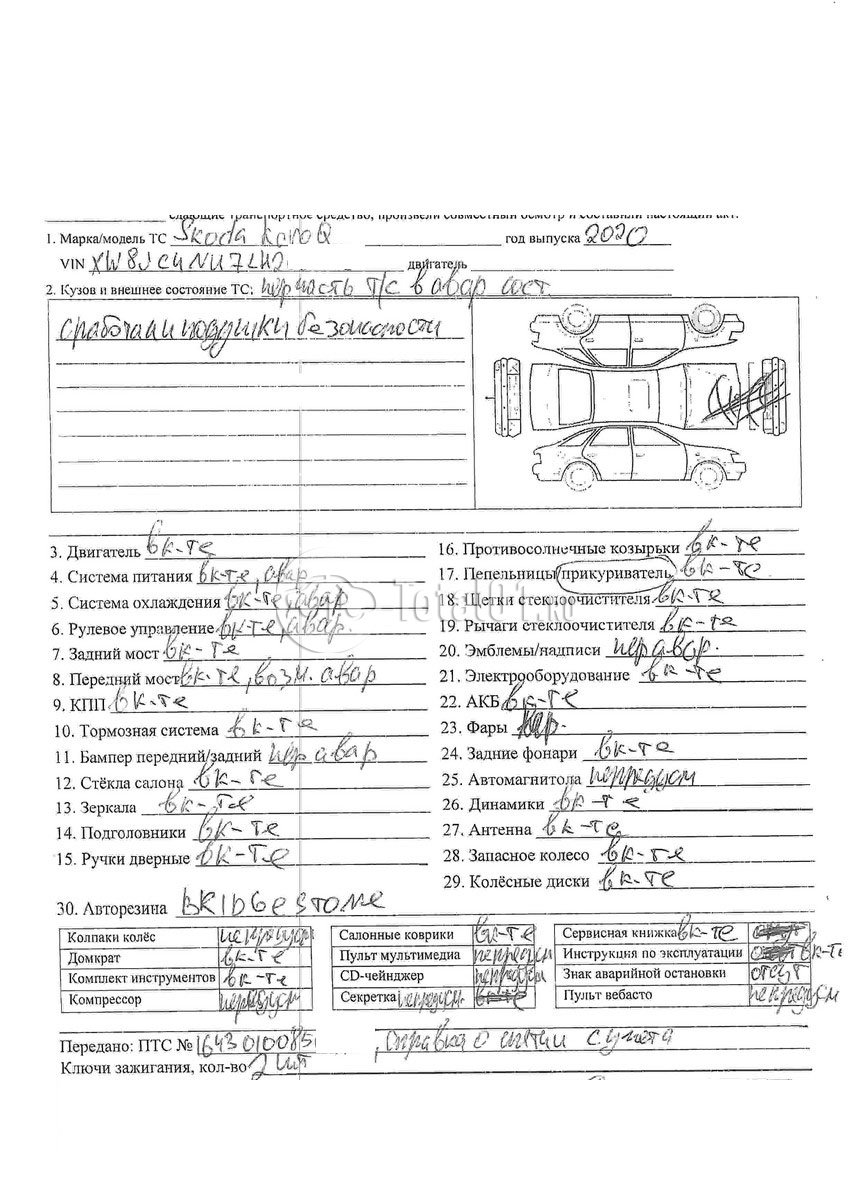 сдающие транспортное средство, произвели совместный осмотр и составили настоящий акт.
1. Марка/модель ТС Skoda Karoq год выпуска 2020
VIN XW8JC4NU7LH2 двигатель
2. Кузов и внешнее состояние ТС: пер часть т/с в авар сост.
сработали подушки безопасности
3. Двигатель вк-те
4. Система питания вк-те, авар
5. Система охлаждения вк-те, авар
6. Рулевое управление вк-те, авар.
7. Задний мост вк-те
8. Передний мост вк-те, возм. авар
9. КПП вк-те
10. Тормозная система вк-те
11. Бампер передний/задний пер авар
12. Стёкла салона вк-те
13. Зеркала вк-те
14. Подголовники вк-те
15. Ручки дверные вк-те
16. Противосолнечные козырьки вк-те
17. Пепельницы/прикуриватель вк-те
18. Щетки стеклоочистителя вк-те
19. Рычаги стеклоочистителя вк-те
20. Эмблемы/надписи пер авар.
21. Электрооборудование вк-те
22. АКБ вк-те
23. Фары
24. Задние фонари вк-те
25. Автомагнитола непредусм
26. Динамики вк-те
27. Антенна вк-те
28. Запасное колесо вк-те
29. Колёсные диски вк-те
Total01.ru
30. Авторезина BRIDGESTONE
Колпаки колёс непредусм
Домкрат вк-те
Комплект инструментов вк-те
Компрессор непредусм
Салонные коврики вк-те
Пульт мультимедиа непредусм
CD-чейнджер непредусм
Секретка непредусм.
Сервисная книжка вк-те
Инструкция по эксплуатации вк-те
Знак аварийной остановки отсут
Пульт вебасто непредусм
Передано: ПТС № 16430100851 , справка о снятии с учета
Ключи зажигания, кол-во 2 шт